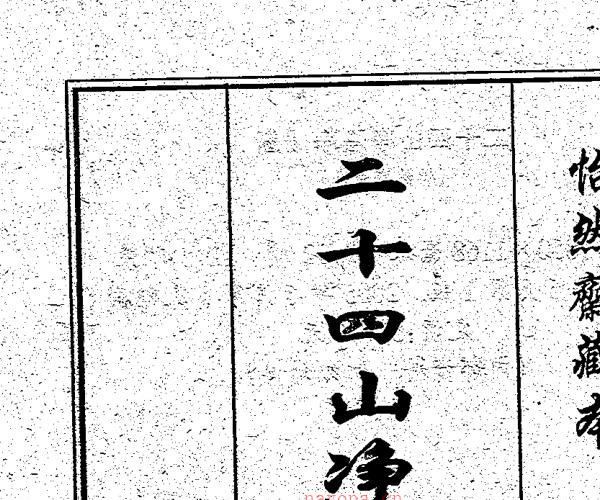 怡然齋藏本
二十四山净